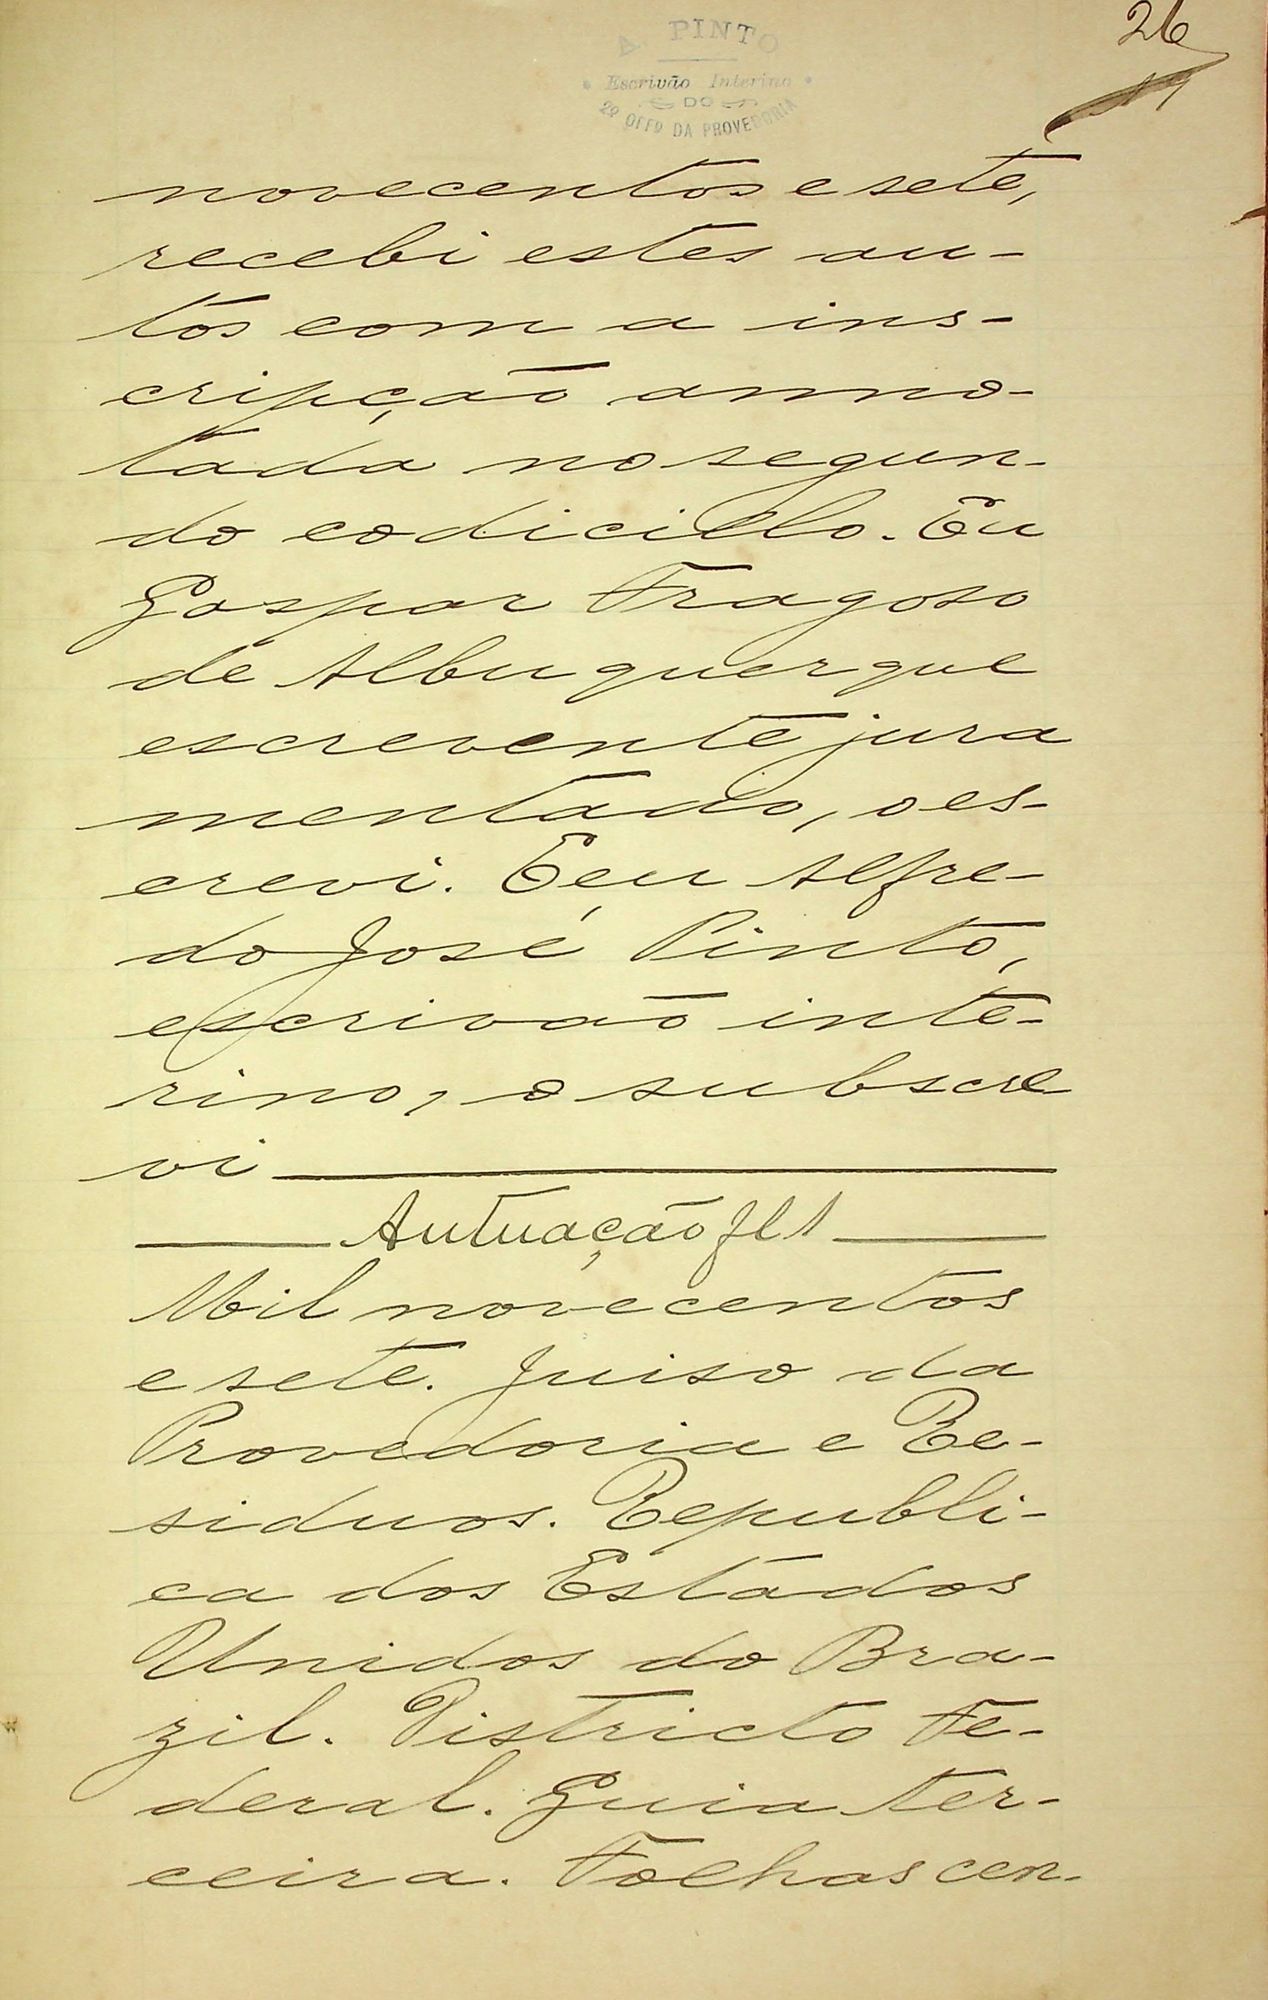 26
A. PINTO
Escrivão Interino
DO
2º OFFº DA PROVEDORIA
novecentos e sete,
recebi estes au-
tos com a ins-
cripção anno-
tada no segun-
do codicillo. Eu
Gaspar Fragoso
de Albuquerque
escrevente jura
mentado, o es-
crevi. E eu Alfre-
do José Pinto,
escrivão inte-
rino, o subscre
vi
Autuação fl 1
Mil novecentos
e sete. Juiso da
Provedoria e Re-
siduos. Republi-
ca dos Estados
Unidos do Bra-
zil. Districto Fe-
deral. Guia ter-
ceira. Folhas cen-